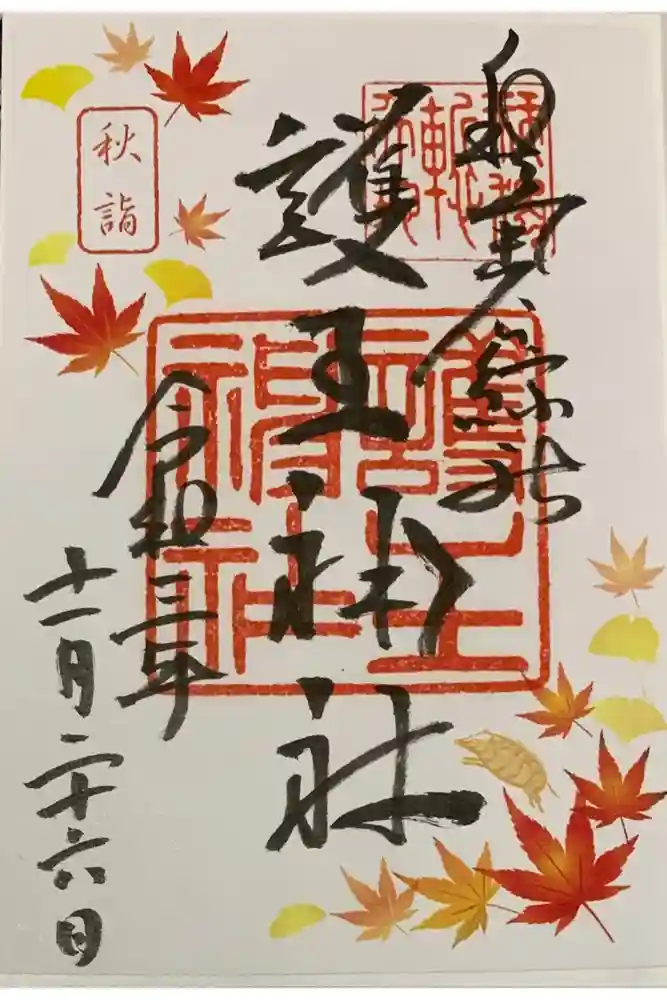 護王神社
護王神社
秋詣
令和三年
十一月二十六日